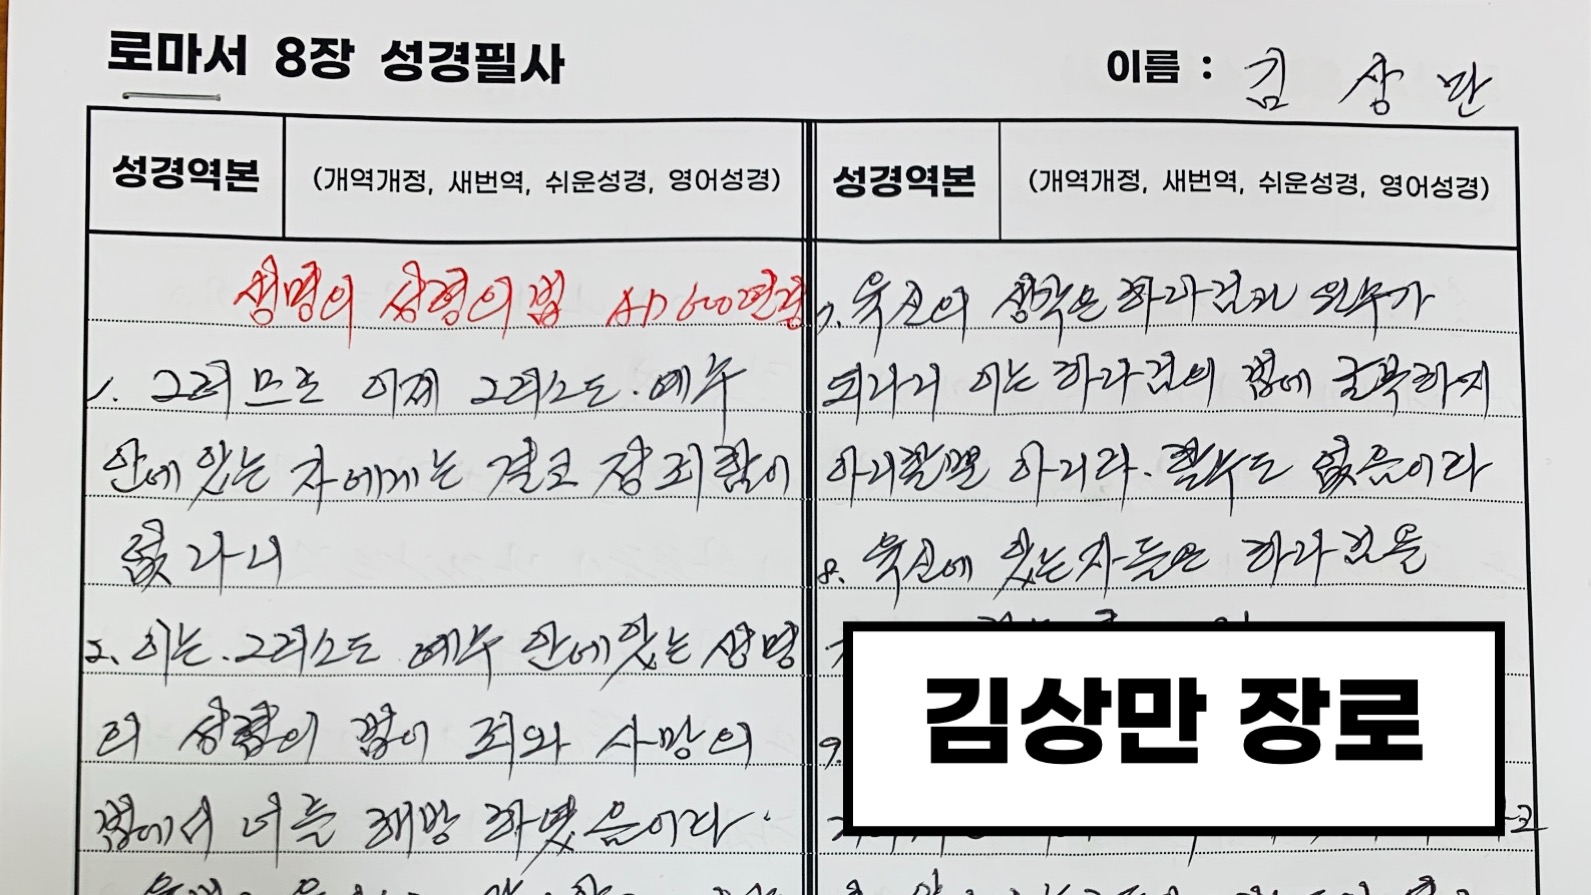 로마서 8장 성경필사
이름 : 김 상 만
성경역본 (개역개정, 새번역, 쉬운성경, 영어성경)
성명의 성령의 법 AD 600년경
1. 그러므로 이제 그리스도. 예수
안에 있는 자에게는 결코 정죄함이
없나니
2. 이는. 그리스도 예수 안에 있는 생명
의 성령의 법이 죄와 사망의
법에서 너를 해방 하였음이라
성경역본 (개역개정, 새번역, 쉬운성경, 영어성경)
7. 육신의 생각은 하나님과 원수가
되나니 이는 하나님의 법에 굴복하지
아니할뿐 아니라. 할수도 없음이라
8. 육신에 있는자들은 하나님을
9.
김상만 장로